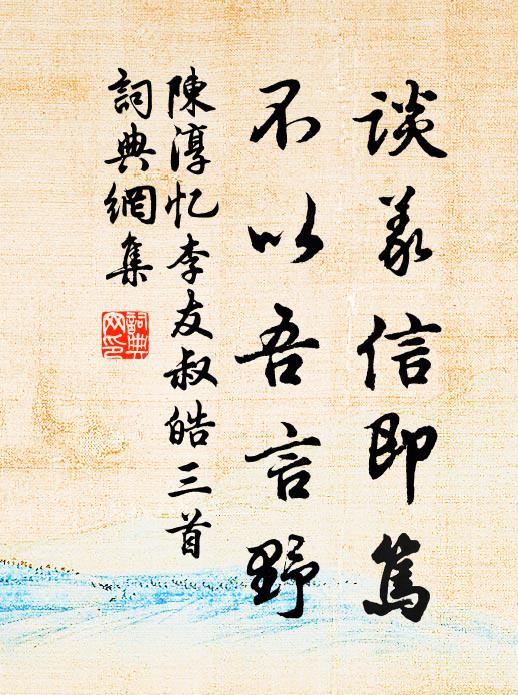 谈義信即篤
不以吾言野
陳淳忆李友叔皓三首
詞典網集
詞典
网印